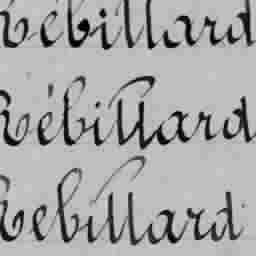 Rebillard
Rébillard
Rebillard